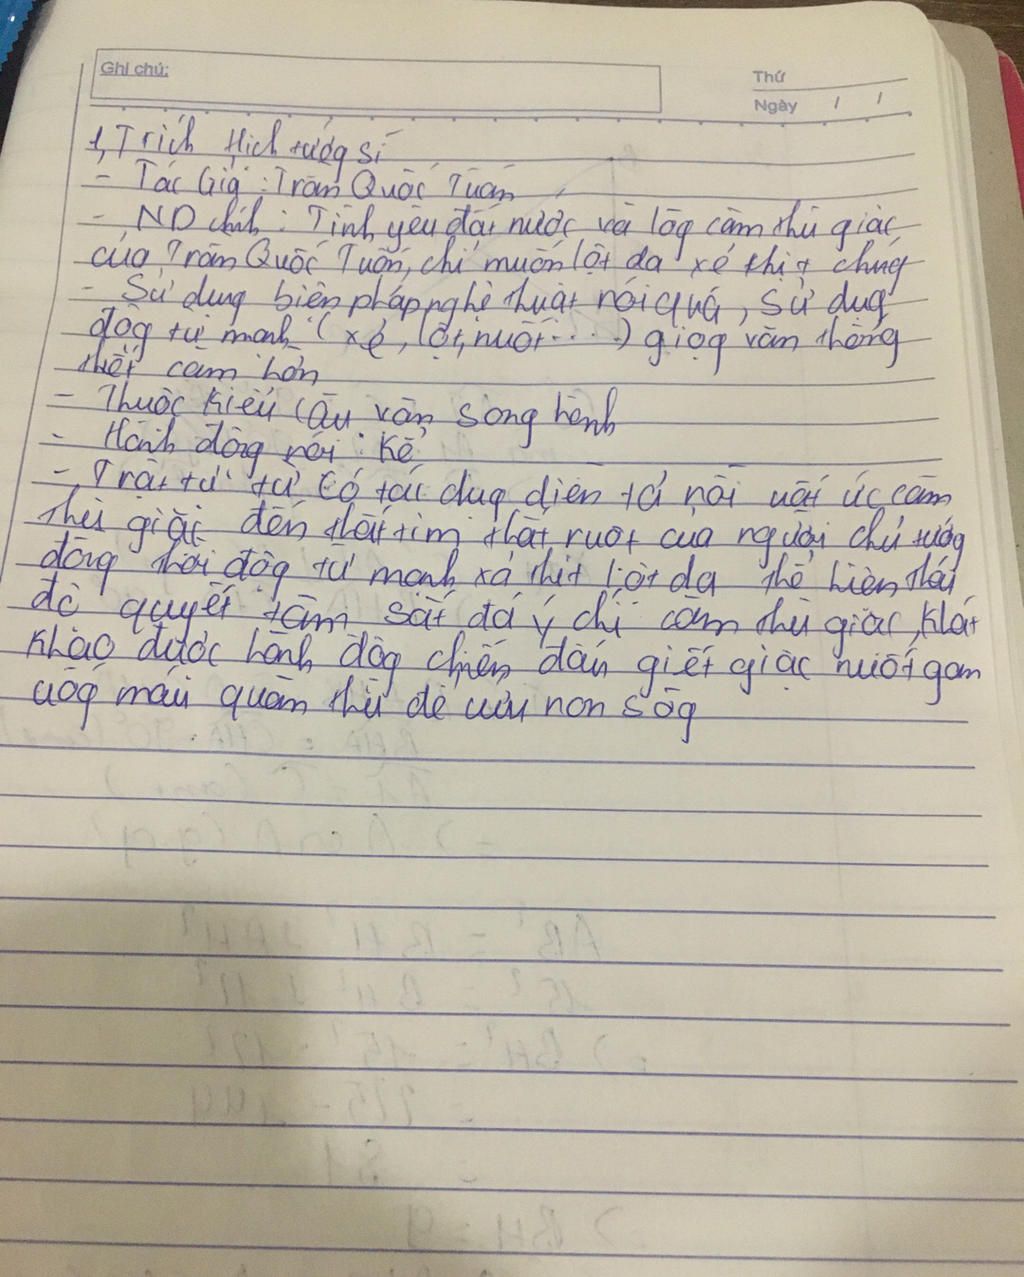 Ghi chú:
Thứ
Ngày / /
1, Trích Hịch tướg sĩ
- Tác Giả: Trần Quốc Tuấn
- ND chíh: Tình yêu đất nước và lòg căm thù giặc
của Trần Quốc Tuấn, chỉ muốn lột da xẻ thịt chúg
- Sử dụg biện pháp nghệ thuật nói quá, sử dụg
độg từ mạnh (xẻ, lột, nuốt...) giọg văn thốg
thiết căm hờn
- Thuộc kiểu câu văn song hành
- Hành độg nói: Kể
- Trật tự từ có tác dụg diễn tả nỗi uất ức căm
thù giặc đến thắt tim thắt ruột của người chủ tướg
đồng thời độg từ mạnh xả thịt lột da thể hiện thái
độ quyết tâm sắt đá ý chí căm thù giặc, khát
khao được hành độg chiến đấu giết giặc nuốt gan
uốg máu quân thù để cứu non sôg